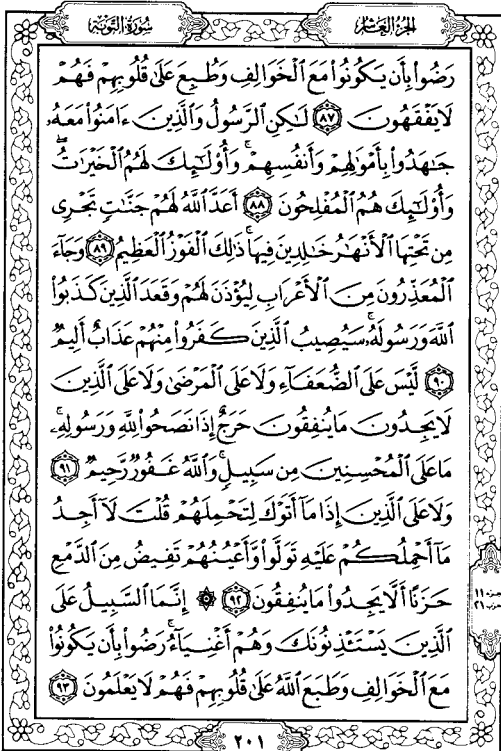 الجزء العاشر
سورة التوبة
رَضُوا۟ بِأَن يَكُونُوا۟ مَعَ ٱلْخَوَالِفِ وَطُبِعَ عَلَىٰ قُلُوبِهِمْ فَهُمْ
لَا يَفْقَهُونَ ٨٧ لَٰكِنِ ٱلرَّسُولُ وَٱلَّذِينَ ءَامَنُوا۟ مَعَهُۥ
جَٰهَدُوا۟ بِأَمْوَٰلِهِمْ وَأَنفُسِهِمْ ۚ وَأُو۟لَٰٓئِكَ لَهُمُ ٱلْخَيْرَٰتُ ۖ
وَأُو۟لَٰٓئِكَ هُمُ ٱلْمُفْلِحُونَ ٨٨ أَعَدَّ ٱللَّهُ لَهُمْ جَنَّٰتٍ تَجْرِى
مِن تَحْتِهَا ٱلْأَنْهَٰرُ خَٰلِدِينَ فِيهَا ۚ ذَٰلِكَ ٱلْفَوْزُ ٱلْعَظِيمُ ٨٩ وَجَآءَ
ٱلْمُعَذِّرُونَ مِنَ ٱلْأَعْرَابِ لِيُؤْذَنَ لَهُمْ وَقَعَدَ ٱلَّذِينَ كَذَبُوا۟
ٱللَّهَ وَرَسُولَهُۥ ۚ سَيُصِيبُ ٱلَّذِينَ كَفَرُوا۟ مِنْهُمْ عَذَابٌ أَلِيمٌ
٩٠ لَّيْسَ عَلَى ٱلضُّعَفَآءِ وَلَا عَلَى ٱلْمَرْضَىٰ وَلَا عَلَى ٱلَّذِينَ
لَا يَجِدُونَ مَا يُنفِقُونَ حَرَجٌ إِذَا نَصَحُوا۟ لِلَّهِ وَرَسُولِهِۦ ۚ
مَا عَلَى ٱلْمُحْسِنِينَ مِن سَبِيلٍ ۚ وَٱللَّهُ غَفُورٌ رَّحِيمٌ ٩١
وَلَا عَلَى ٱلَّذِينَ إِذَا مَآ أَتَوْكَ لِتَحْمِلَهُمْ قُلْتَ لَآ أَجِدُ
مَآ أَحْمِلُكُمْ عَلَيْهِ تَوَلَّوا۟ وَّأَعْيُنُهُمْ تَفِيضُ مِنَ ٱلدَّمْعِ
حَزَنًا أَلَّا يَجِدُوا۟ مَا يُنفِقُونَ ٩٢ ۞ إِنَّمَا ٱلسَّبِيلُ عَلَى
ٱلَّذِينَ يَسْتَـْٔذِنُونَكَ وَهُمْ أَغْنِيَآءُ ۚ رَضُوا۟ بِأَن يَكُونُوا۟
مَعَ ٱلْخَوَالِفِ وَطَبَعَ ٱللَّهُ عَلَىٰ قُلُوبِهِمْ فَهُمْ لَا يَعْلَمُونَ ٩٣
جزء ١١
حزب ٢١
٢٠١